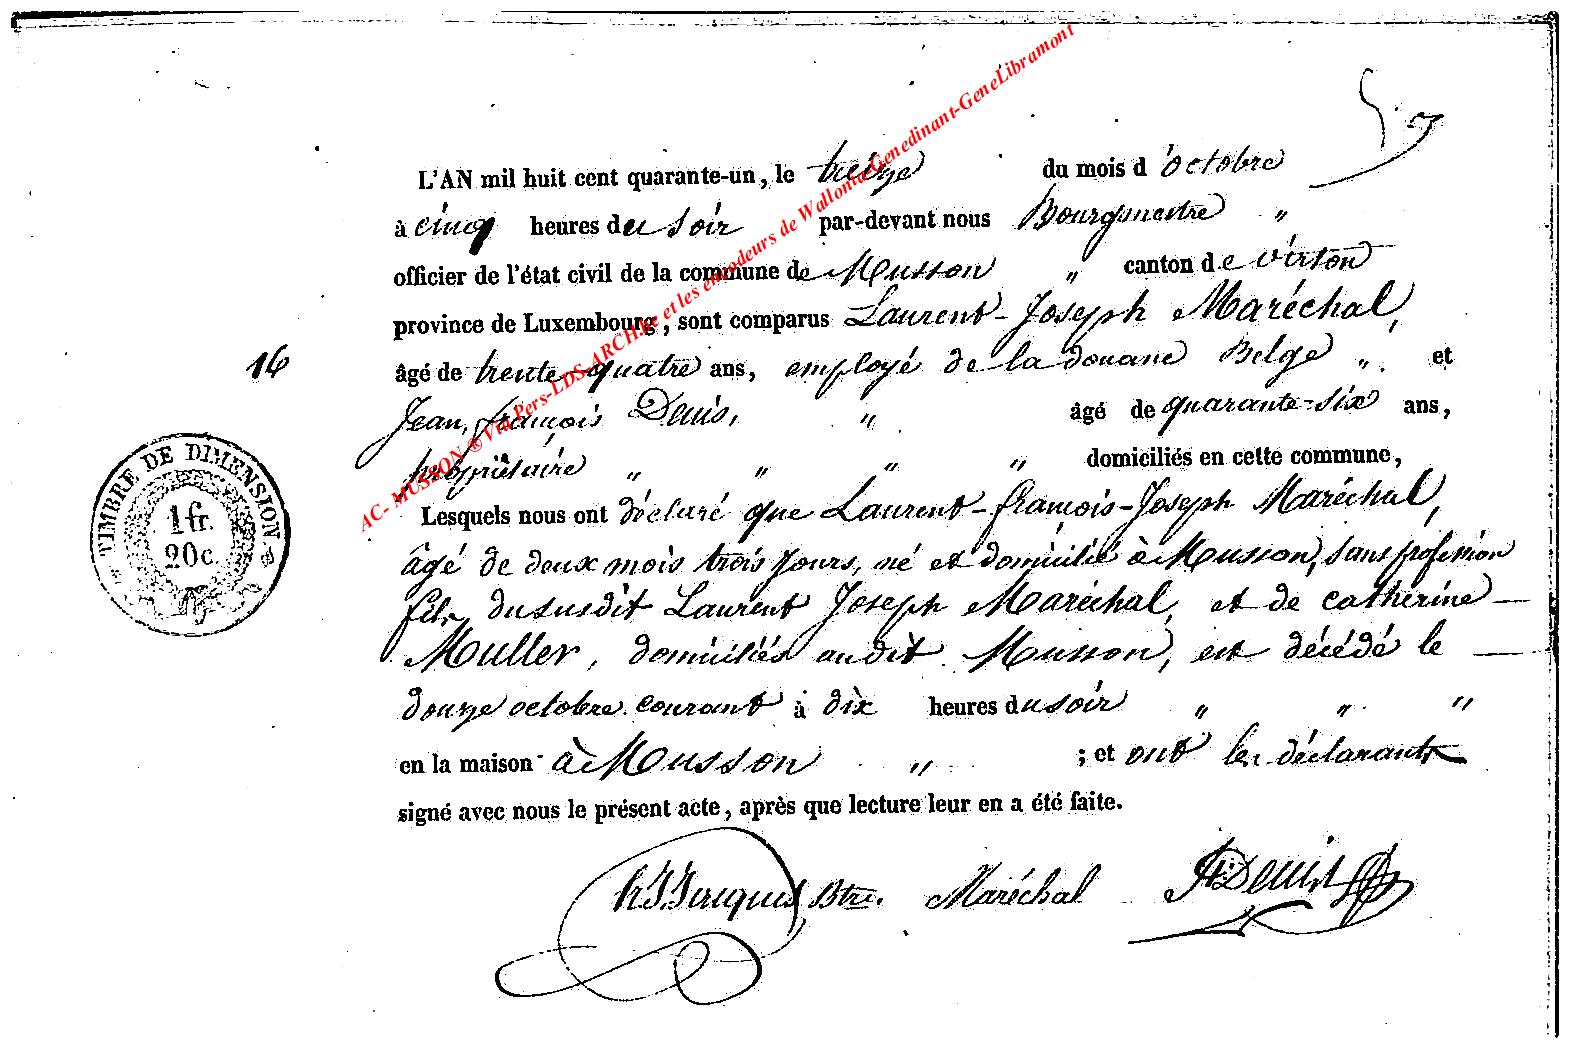 L'AN mil huit cent quarante-un, le treize du mois d'octobre
à cinq heures du soir par-devant nous Bourgmestre "
officier de l'état civil de la commune de Musson " canton de virton
province de Luxembourg, sont comparus Laurent-Joseph Maréchal,
16
âgé de trente-quatre ans, employé de la douane Belge " et
Jean-françois Denis, " âgé de quarante-six ans,
propriétaire " " " " domiciliés en cette commune,
Lesquels nous ont déclaré que Laurent-françois-Joseph Maréchal,
âgé de deux mois trois jours, né et domicilié à Musson, sans profession
fils du susdit Laurent Joseph Maréchal, et de catherine
Muller, domiciliés audit Musson, est décédé le
douze octobre courant à dix heures du soir " " "
en la maison à Musson " ; et ont les déclarants
signé avec nous le présent acte, après que lecture leur en a été faite.
Btre. Maréchal Denis
TIMBRE DE DIMENSION
1 fr.
20 c.
AC- MUSSON © Via Pers-LDS-ARCH.be et les encodeurs de Wallonia-Genedinant-GeneLibramont